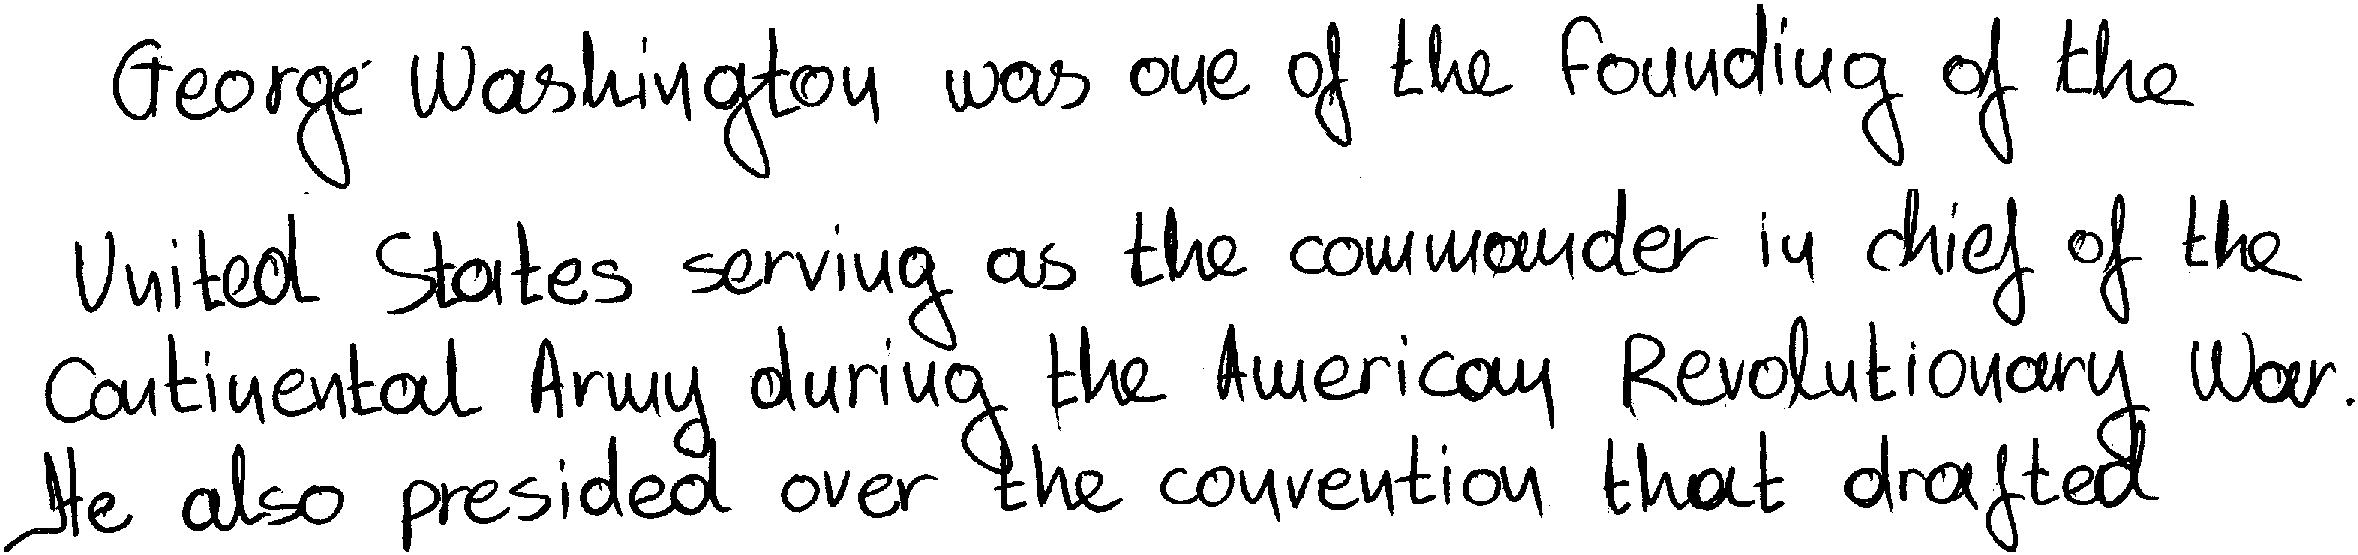 George Washington was one of the Founding of the
United States serving as the commander in chief of the
Continental Army during the American Revolutionary War.
He also presided over the convention that drafted